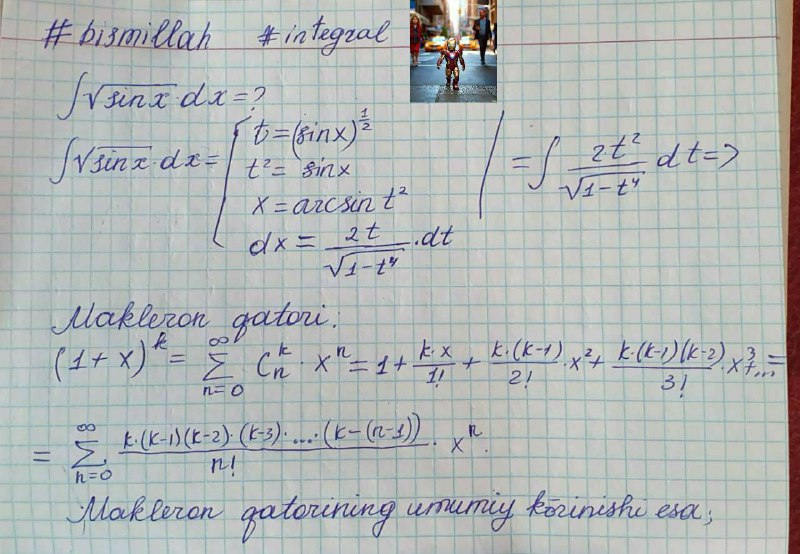 #bismillah #integral
∫√sinx·dx=?
∫√sinx·dx= { t=(sinx)^(1/2)
t²= sinx
x=arcsin t²
dx= 2t/√(1-t⁴) ·dt
| =∫ 2·t²/√(1-t⁴) dt=>
Makleron qatori:
(1+x)^k = ∑_{n=0}^{∞} C_n^k · x^n = 1+ k·x/1! + k·(k-1)/2! ·x²+ k·(k-1)(k-2)/3! ·x³+...=
= ∑_{n=0}^{∞} k·(k-1)(k-2)·(k-3)·....·(k-(n-1))/n! · x^n.
Makleron qatorining umumiy körinishi esa;